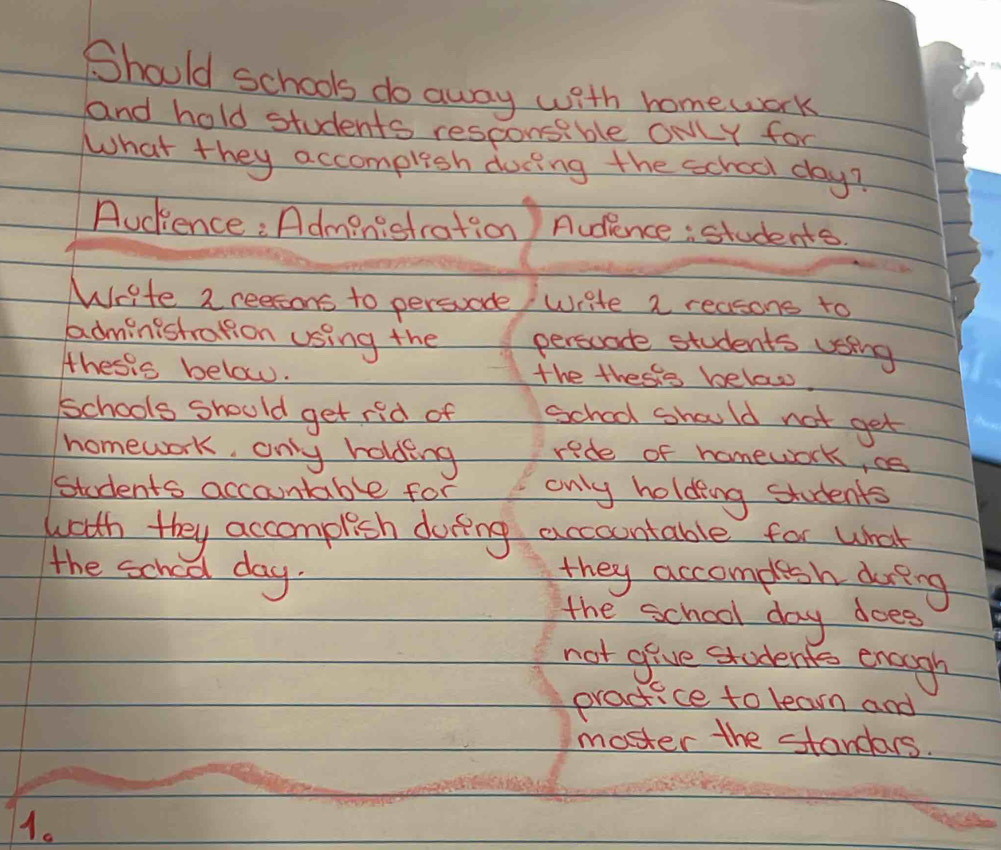 Should schools do away with homework
and hold students responsible ONLY for
what they accomplish during the school day?
Audience: Administration
Write 2 reesons to persuade
administration using the
thesis below.
Schools should get rid of
homework. only holding
Students accountable for
wath they accomplish during
the school day.
Audience: students.
Write 2 reasons to
persuade students using
the thesis below.
School should not get
ride of homework, as
only holding students
accountable for what
they accomplish during
the school day does
not give students enough
practice to learn and
master the standars.
1.